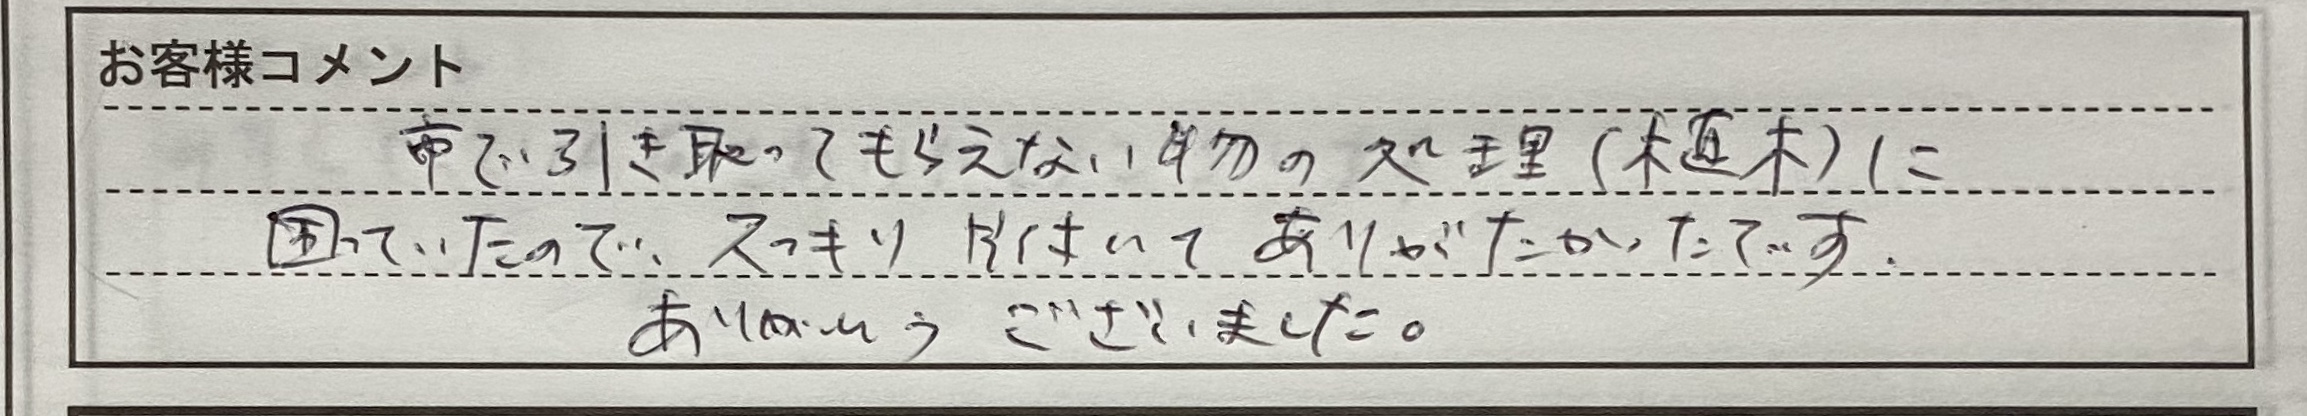 お客様コメント
市で引き取ってもらえない物の処理(植木)に
困っていたので、スッキリ片付いて ありがたかったです.
ありがとう ございました。